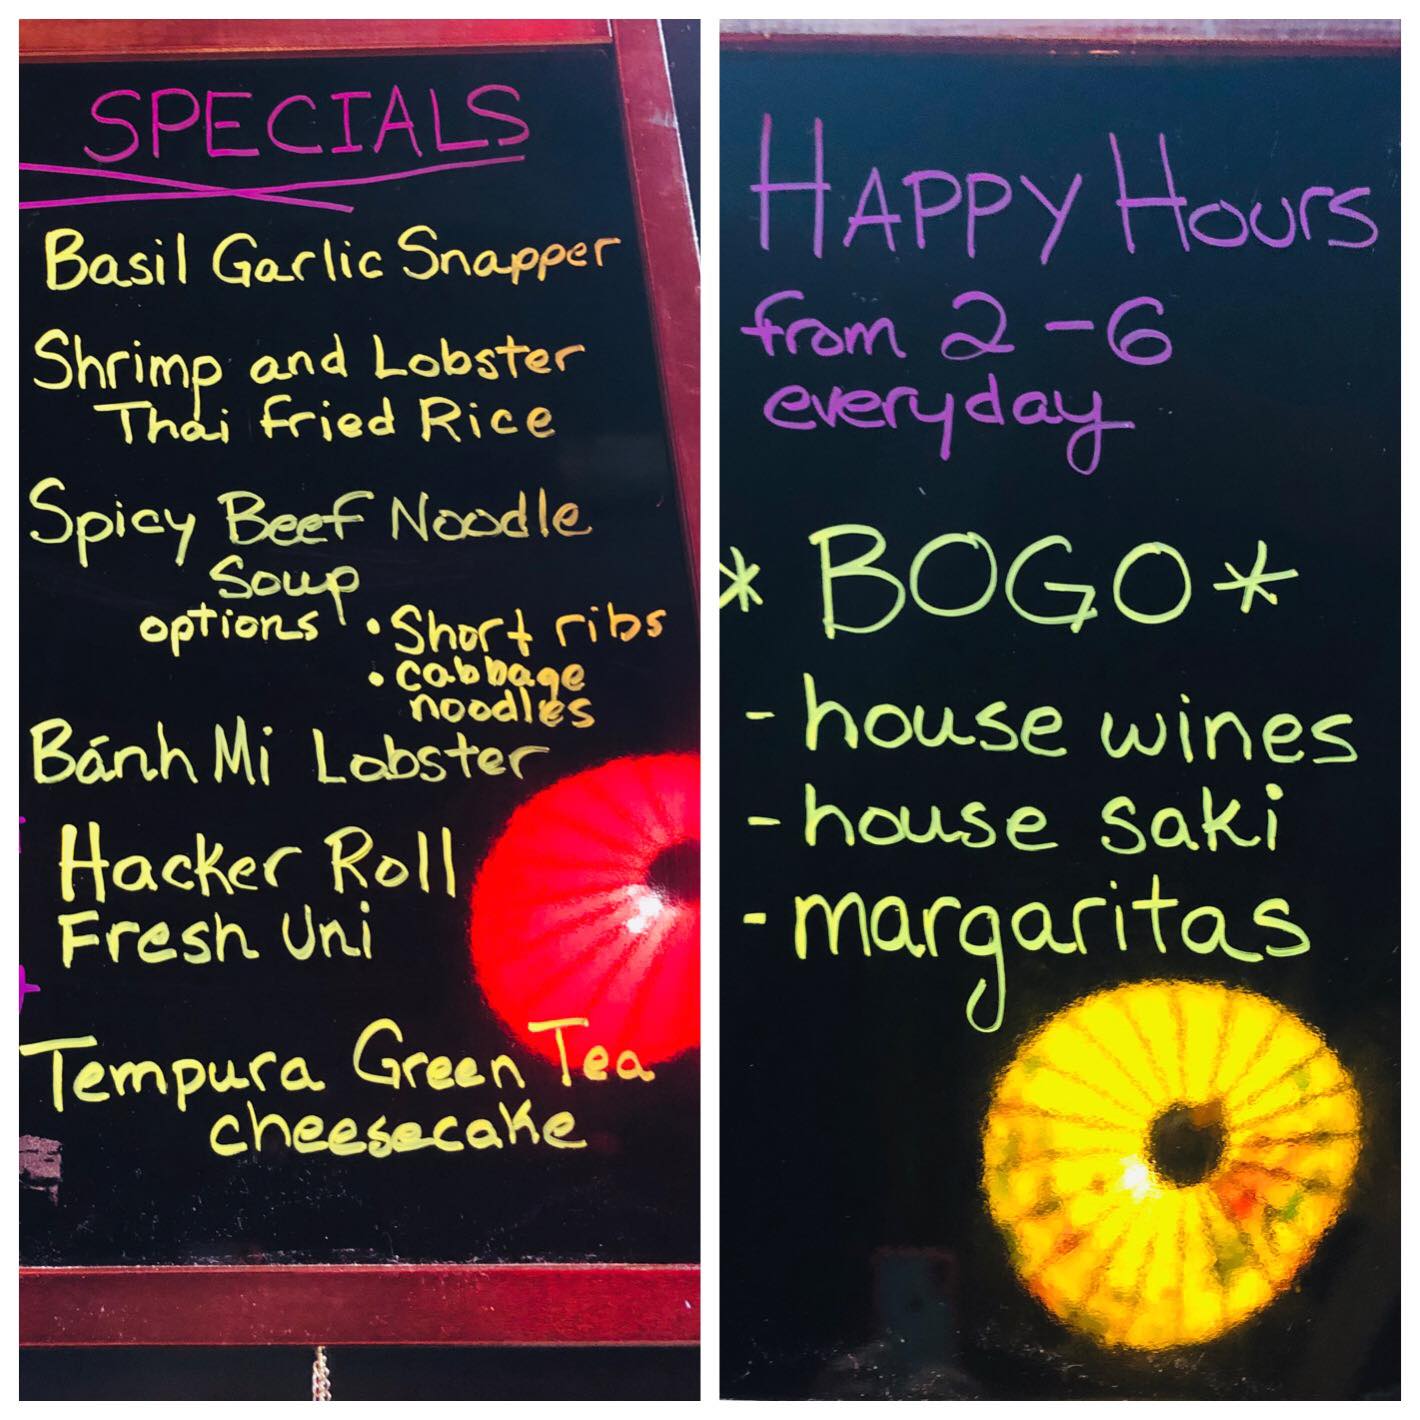 SPECIALS
Basil Garlic Snapper
Shrimp and Lobster
Thai Fried Rice
Spicy Beef Noodle
Soup
options • Short ribs
• cabbage
noodles
Bánh Mi Lobster
Hacker Roll
Fresh Uni
Tempura Green Tea
cheesecake
HAPPY HOURS
from 2-6
everyday
* BOGO *
- house wines
- house saki
- margaritas